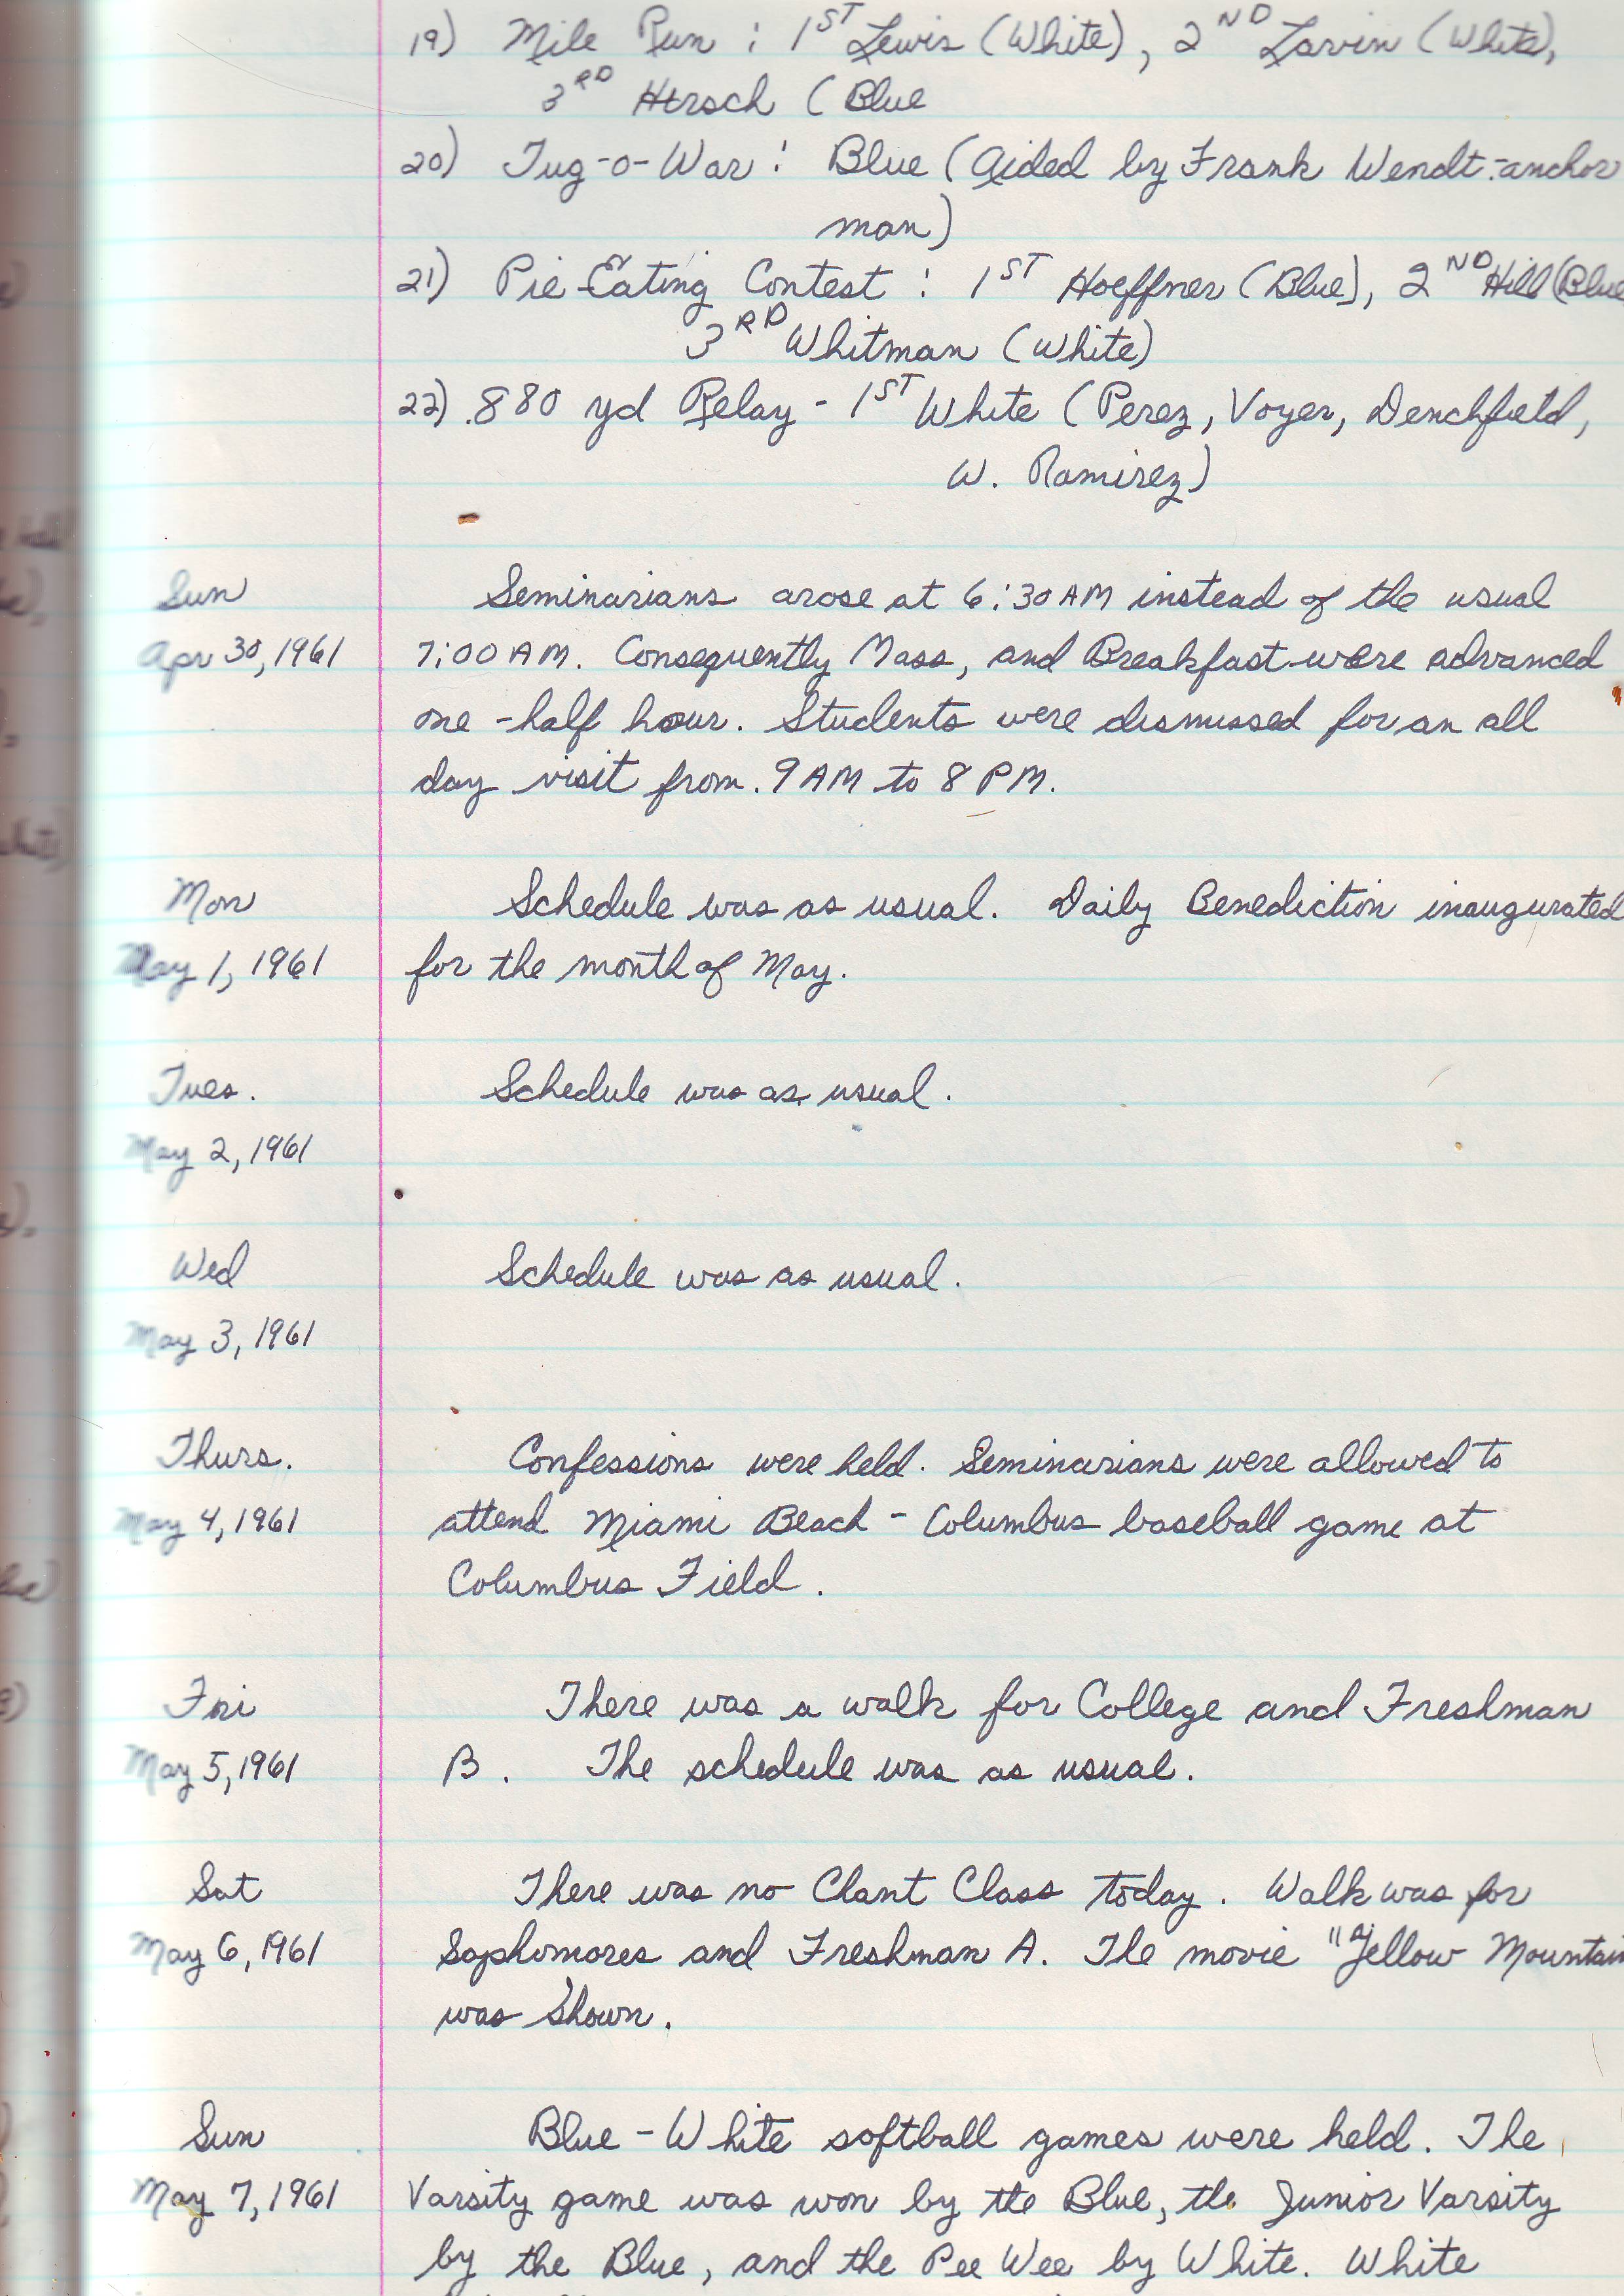 19) Mile Run : 1ST Lewis (White), 2ND Larvin (White),
3RD Hirsch (Blue
20) Tug-o-War : Blue (Aided by Frank Wendt-anchor
man)
21) Pie Eating Contest : 1ST Hoeffner (Blue), 2ND Hill (Blue
3RD Whitman (White)
22) 880 yd Relay - 1ST White (Perez, Voyer, Denchfield,
W. Ramirez)
Sun Seminarians arose at 6:30 AM instead of the usual
Apr 30, 1961 7:00 AM. Consequently Mass, and Breakfast were advanced
one-half hour. Students were dismissed for an all
day visit from 9 AM to 8 PM.
Mon Schedule was as usual. Daily Benediction inaugurated
May 1, 1961 for the month of May.
Tues. Schedule was as usual.
May 2, 1961
Wed Schedule was as usual.
May 3, 1961
Thurs. Confessions were held. Seminarians were allowed to
May 4, 1961 attend Miami Beach - Columbus baseball game at
Columbus Field.
Fri There was a walk for College and Freshman
May 5, 1961 B. The schedule was as usual.
Sat There was no Chant Class today. Walk was for
May 6, 1961 Sophomores and Freshman A. The movie "Yellow Mountain
was shown.
Sun Blue-White softball games were held. The
May 7, 1961 Varsity game was won by the Blue, the Junior Varsity
by the Blue, and the Pee Wee by White. White